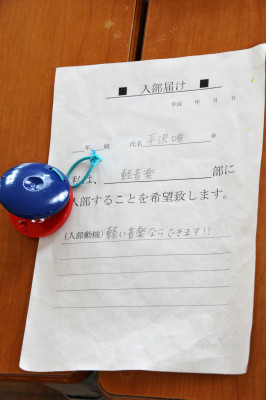 ■ 入部届け ■
平成 年 月 日
年 組 氏名 平沢 唯
私は、 軽音楽 部に
入部することを希望致します。
(入部動機) 軽い音楽ならできます!!